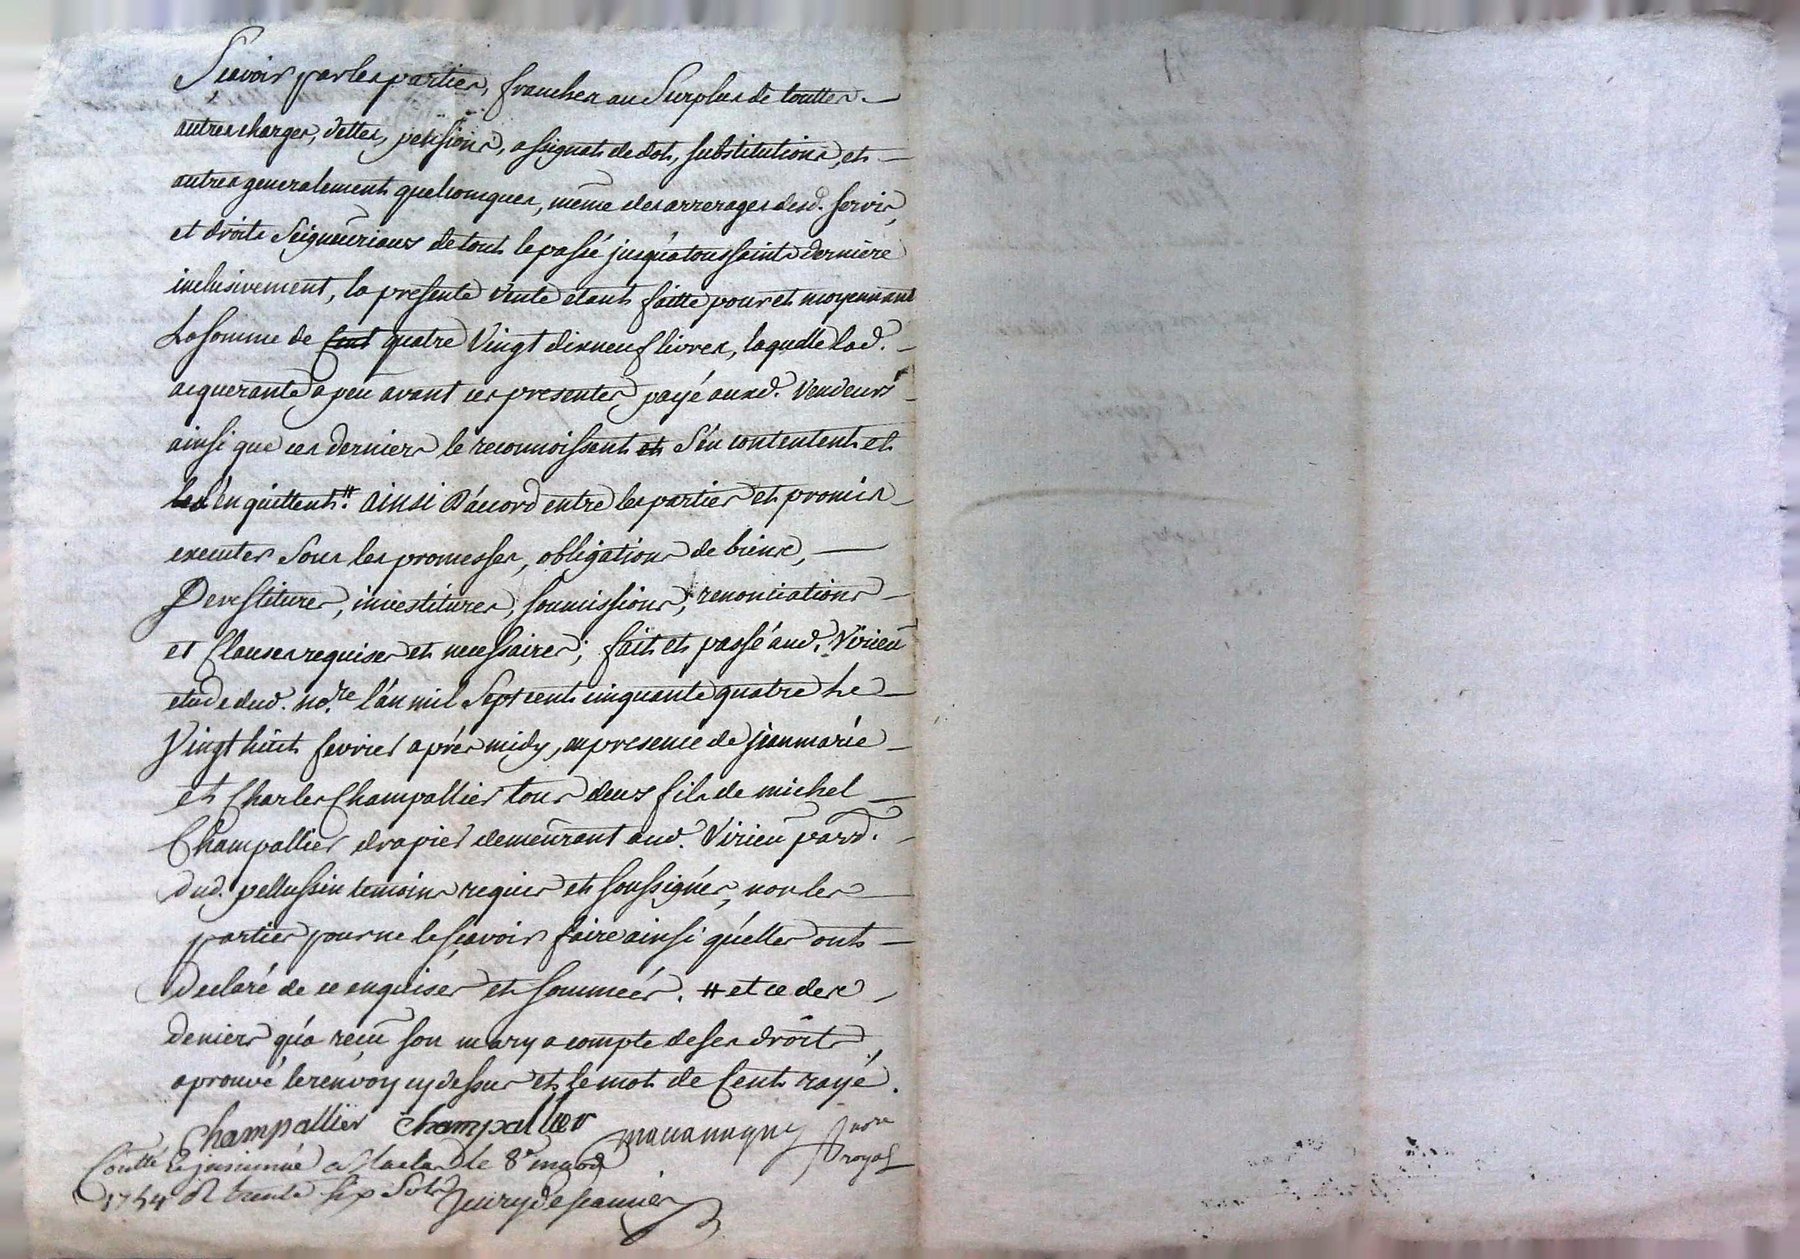 Scavoir par les parties, franches au Surplus de touttes
autres charges, dettes, pensions, assignats de dot, substitutions, et
autres generalement quelconques, même des arrerages desd. servis,
et droits Seigneuriaux de tout le passé jusqu'a toussaints derniere
inclusivement, la presente Vente etant faitte pour et moyennant
La Somme de Cent quatre Vingt dix neuf livres, laquelle lad.
acquerante a peu avant ces presentes payé auxd. Vendeurs
ainsi que ces derniers le reconnoissent et S'en contentent et
l'en quittent # ainsi D'accord entre les parties et promis
executer Sous les promesses, obligations de biens,
Devestitures, investitures, soumissions, renonciations
et Clauses requises et necessaires; fait et passé aud. Virieu
etude dud. no.re l'an mil Sept cent cinquante quatre Le
Vingt huit fevrier après midy, en presence de jean marie
et Charles Champallier tous deux fils de michel
Champallier drapier demeurant aud. Virieu parr.
dud. pellussin temoins requis et soussignés, non les
parties pour ne le sçavoir faire ainsi qu'elles ont
Declaré de ce enquises et sommeés. # et ce des
deniers qu'a recu son mary a compte de ses droits,
aprouvé le renvoy cy dessus et le mot de Cent rayé.
Champallier Champallier
no.re
royal
Contlé & insinué a le 8e mars
1754 R trente six Sols